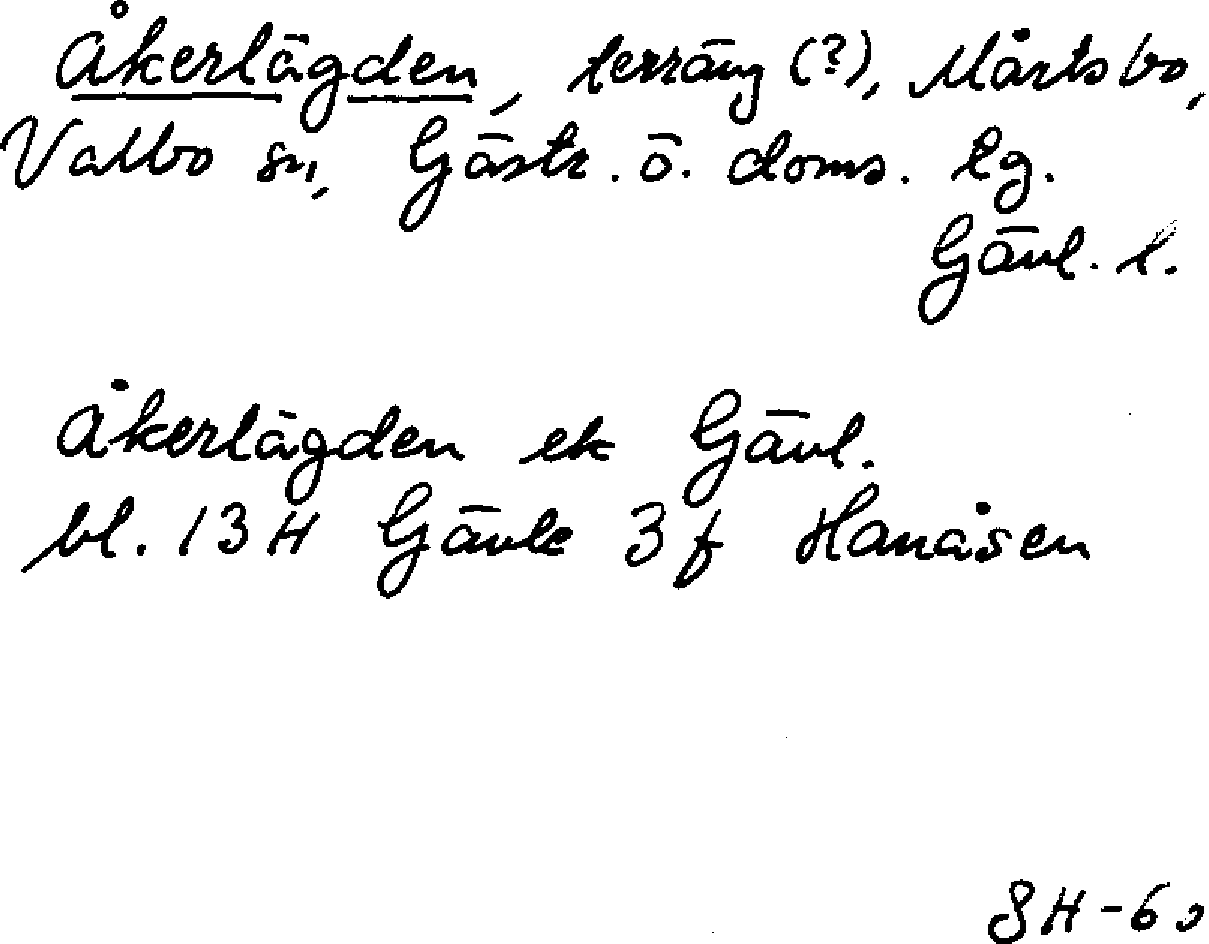 Åkerlägden, terräng (?), Mårtsbo,
Valbo sn, Gästr. ö. doms. lg.
Gävl. l.
Åkerlägden ek Gävl.
bl. 13 H Gävle 3 f Hanåsen
SH-60